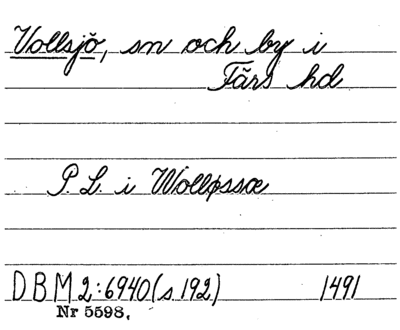 Vollsjö, sn och by i
Färs hd
P. L. i Wolløssæ
DBM 2:6940 (s 192) 1491
Nr 5598.